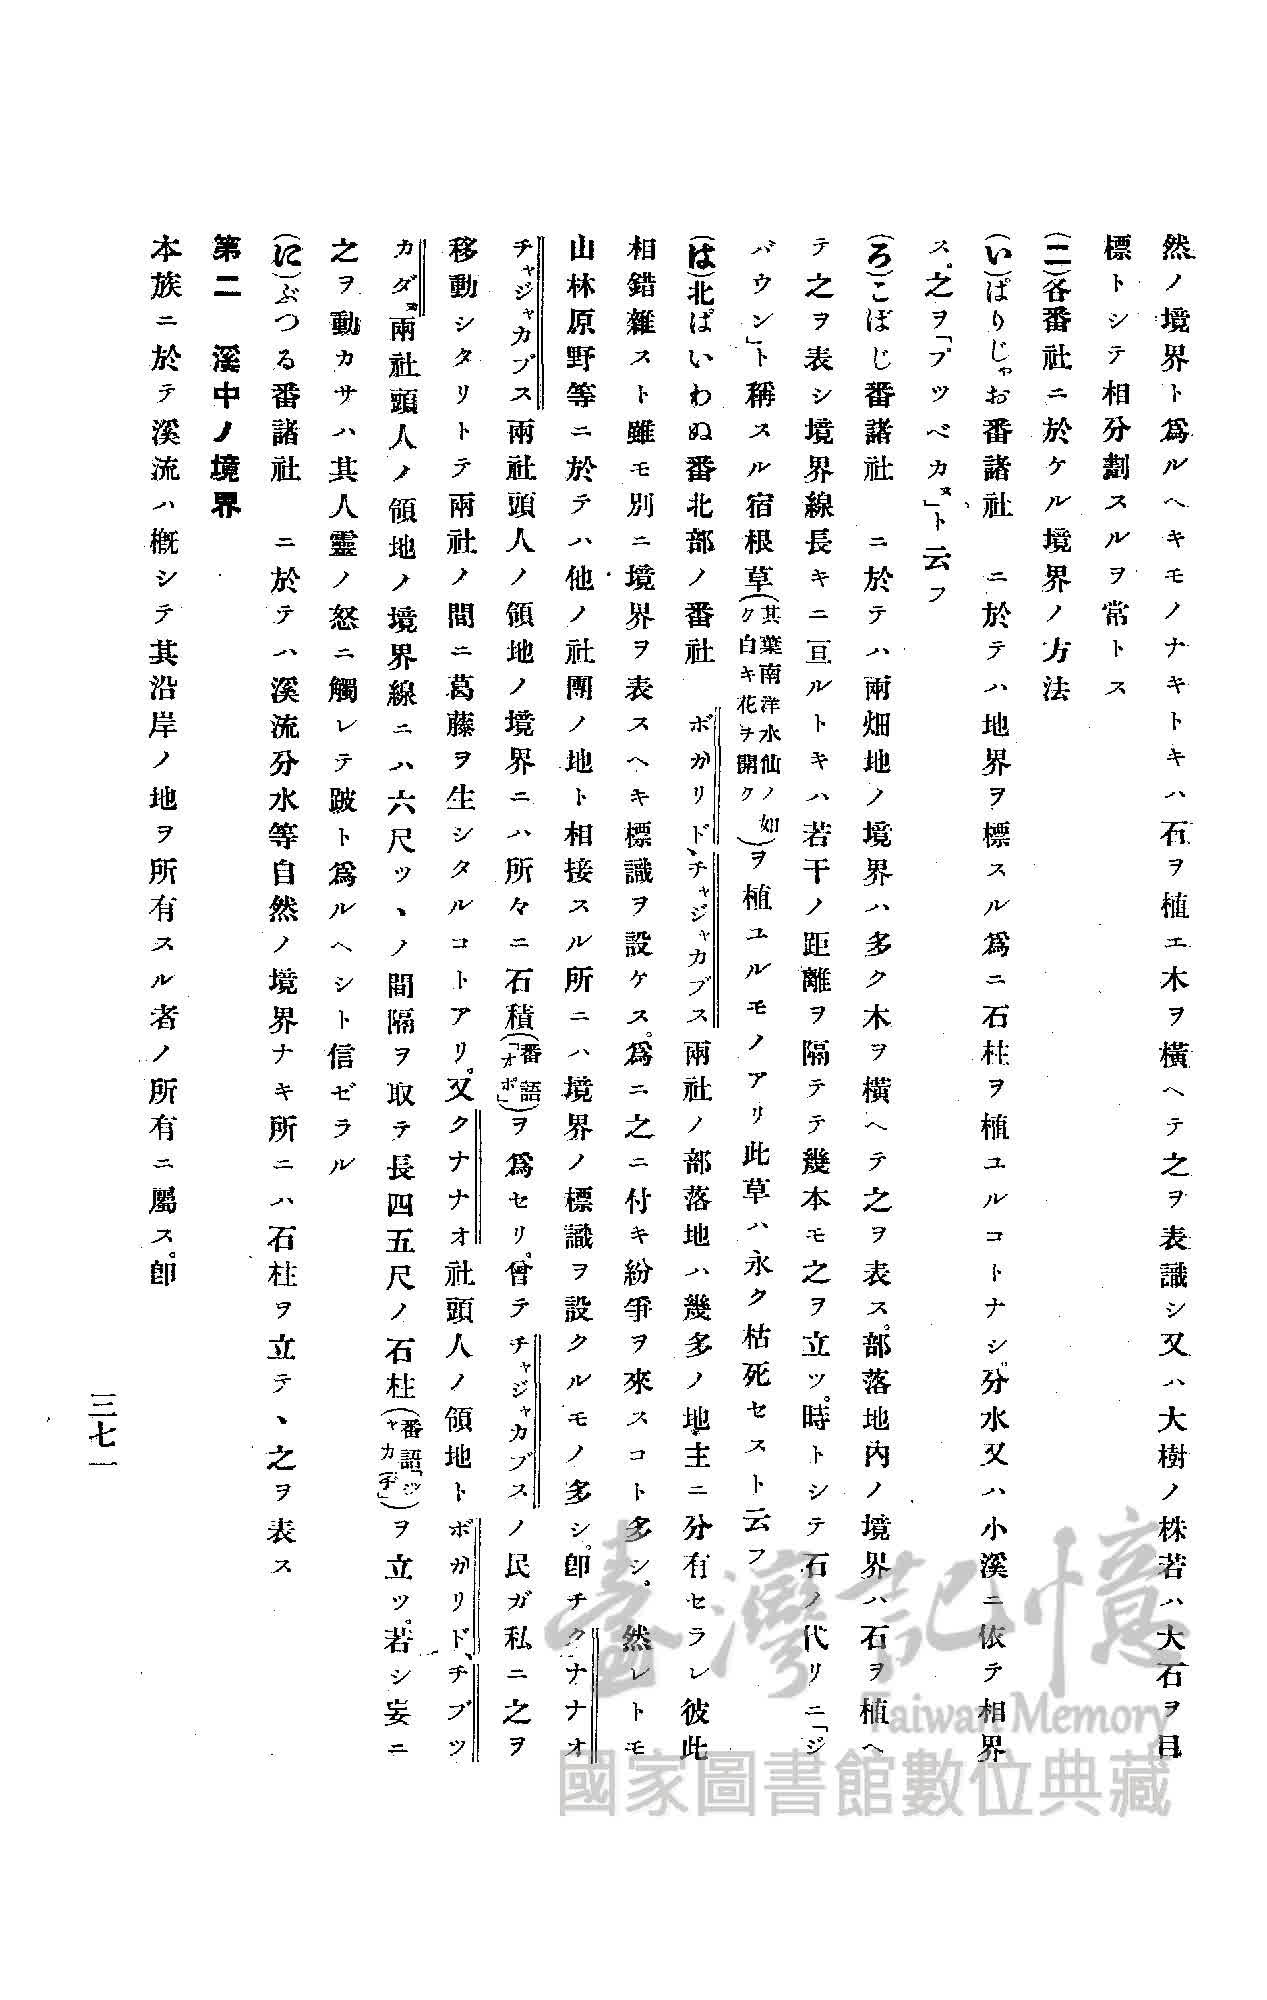 然ノ境界ト爲ルヘキモノナキトキハ石ヲ植エ木ヲ橫ヘテ之ヲ表識シ又ハ大樹ノ株若ハ大石ヲ目
標トシテ相分劃スルヲ常トス
(二)各番社ニ於ケル境界ノ方法
(い)ぱりじゃお番諸社　ニ於テハ地界ヲ標スル爲ニ石柱ヲ植ユルコトナシ分水又ハ小溪ニ依テ相界
ス。之ヲ「プツベカヌ」ト云フ
(ろ)こぼじ番諸社　ニ於テハ兩畑地ノ境界ハ多ク木ヲ橫ヘテ之ヲ表ス。部落地內ノ境界ハ石ヲ植ヘ
テ之ヲ表シ境界線長キニ亘ルトキハ若干ノ距離ヲ隔テテ幾本モ之ヲ立ツ。時トシテ石ノ代リニ「ジ
バウン」ト稱スル宿根草(其葉南洋水仙ノ如ク白キ花ヲ開ク)ヲ植ユルモノアリ此草ハ永ク枯死セスト云フ
(は)北ぱいわぬ番北部ノ番社　ボガリド、チャジャカブス兩社ノ部落地ハ幾多ノ地主ニ分有セラレ彼此
相錯雜スト雖モ別ニ境界ヲ表スヘキ標識ヲ設ケス。爲ニ之ニ付キ紛爭ヲ來スコト多シ。然レトモ
山林原野等ニ於テハ他ノ社團ノ地ト相接スル所ニハ境界ノ標識ヲ設クルモノ多シ。卽チクナナオ
チャジャカブス兩社頭人ノ領地ノ境界ニハ所々ニ石積(番語「オポ」)ヲ爲セリ。曾テチャジャカブスノ民ガ私ニ之ヲ
移動シタリトテ兩社ノ間ニ葛藤ヲ生シタルコトアリ。又クナナオ社頭人ノ領地トボガリド、チブツ
カダヌ兩社頭人ノ領地ノ境界線ニハ六尺ツヽノ間隔ヲ取テ長四五尺ノ石柱(番語「ジャカ字」)ヲ立ツ。若シ妄ニ
之ヲ動カサハ其人靈ノ怒ニ觸レテ跛ト爲ルヘシト信ゼラル
(に)ぶつる番諸社　ニ於テハ溪流分水等自然ノ境界ナキ所ニハ石柱ヲ立テヽ之ヲ表ス
第二　溪中ノ境界
本族ニ於テ溪流ハ槪シテ其沿岸ノ地ヲ所有スル者ノ所有ニ屬ス。卽
三七一
臺灣記憶
Taiwan Memory
國家圖書館數位典藏